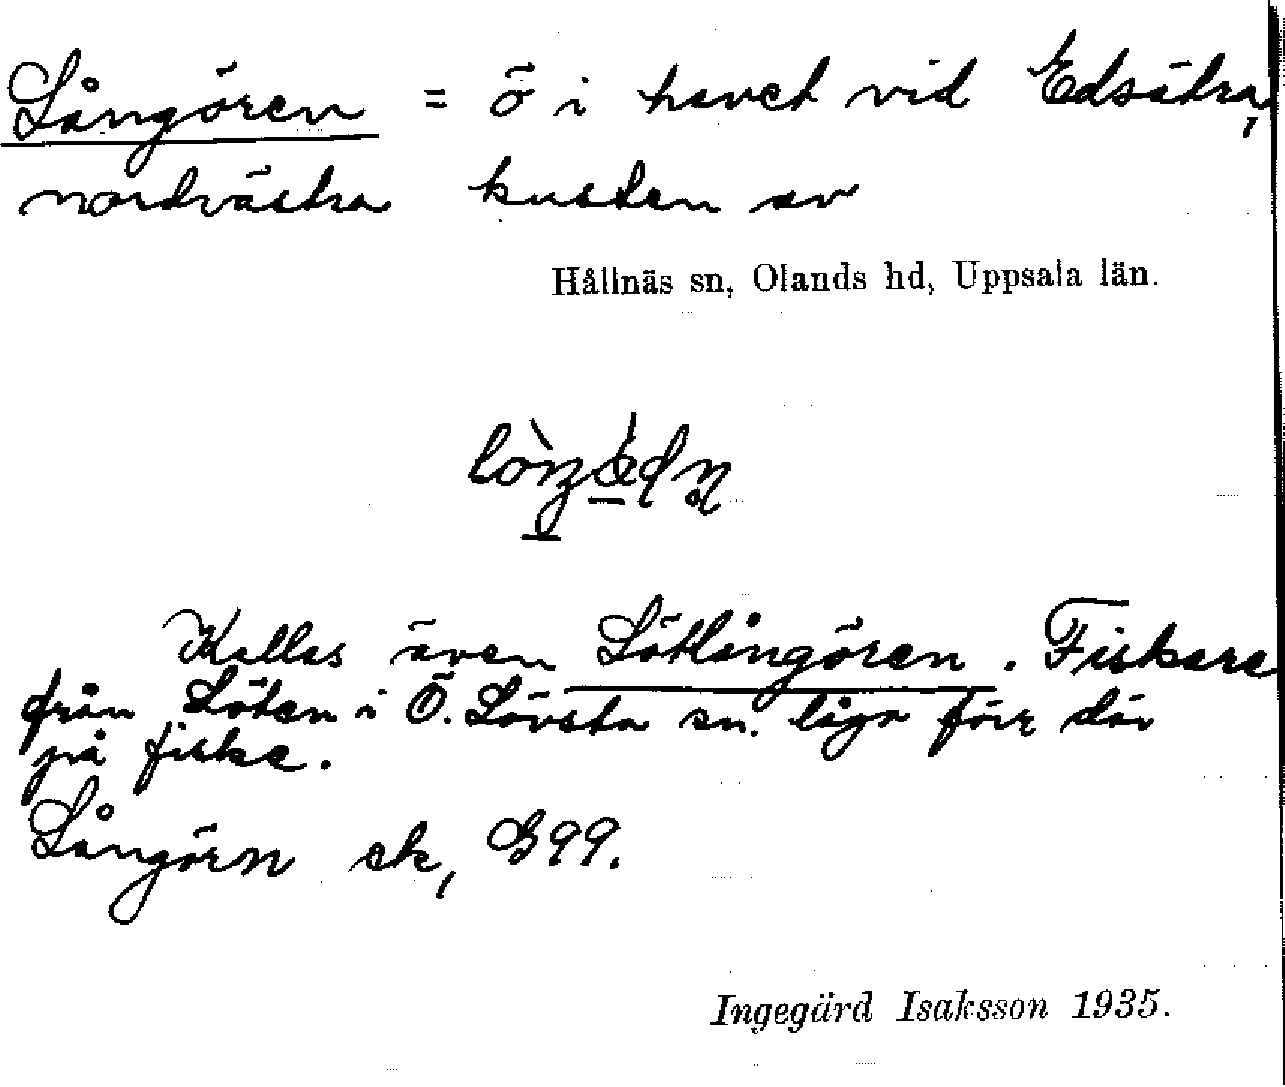 Långören = ö i havet vid Edsätra,
nordvästra kusten av
Hållnäs sn, Olands hd, Uppsala län.
Kallas även Lötlångören. Fiskare
från Löten i Ö. Lövsta sn. låga förr där
på fiske.
Långörn ek, B99.
Ingegärd Isaksson 1935.